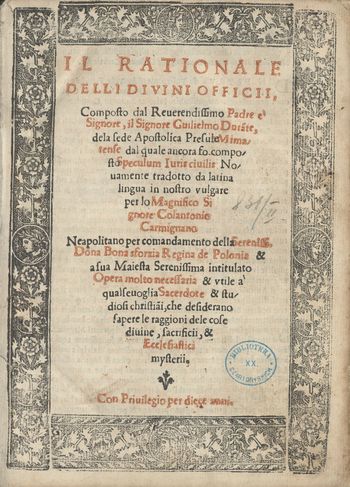 IL RATIONALE
DELLI DIVINI OFFICII,
Composto dal Reuerendissimo Padre e'
Signore, il Signore Guilielmo Duräte,
dela sede Apostolica Presule Mima
tense dal quale ancora fo compo
sto Speculum Iuris ciuilis No
uamente tradotto da latina
lingua in nostro vulgare
per lo Magnifico Si
gnore Colantonio
Carmignano
Neapolitano per comandamento della Sereniss.
Dõna Bona sforzia Regina de Polonia &
a sua Maiesta Serenissima intitulato
Opera molto necessaria & vtile a'
qualseuoglia Sacerdote & stu
diosi christiãi, che desiderano
sapere le raggioni dele cose
diuine, sacrificii, &
Ecclesiastici
mysterii,
Con Priuilegio per diece anni.
BIBLIOTEKA
XX.
CZARTORYSKICH